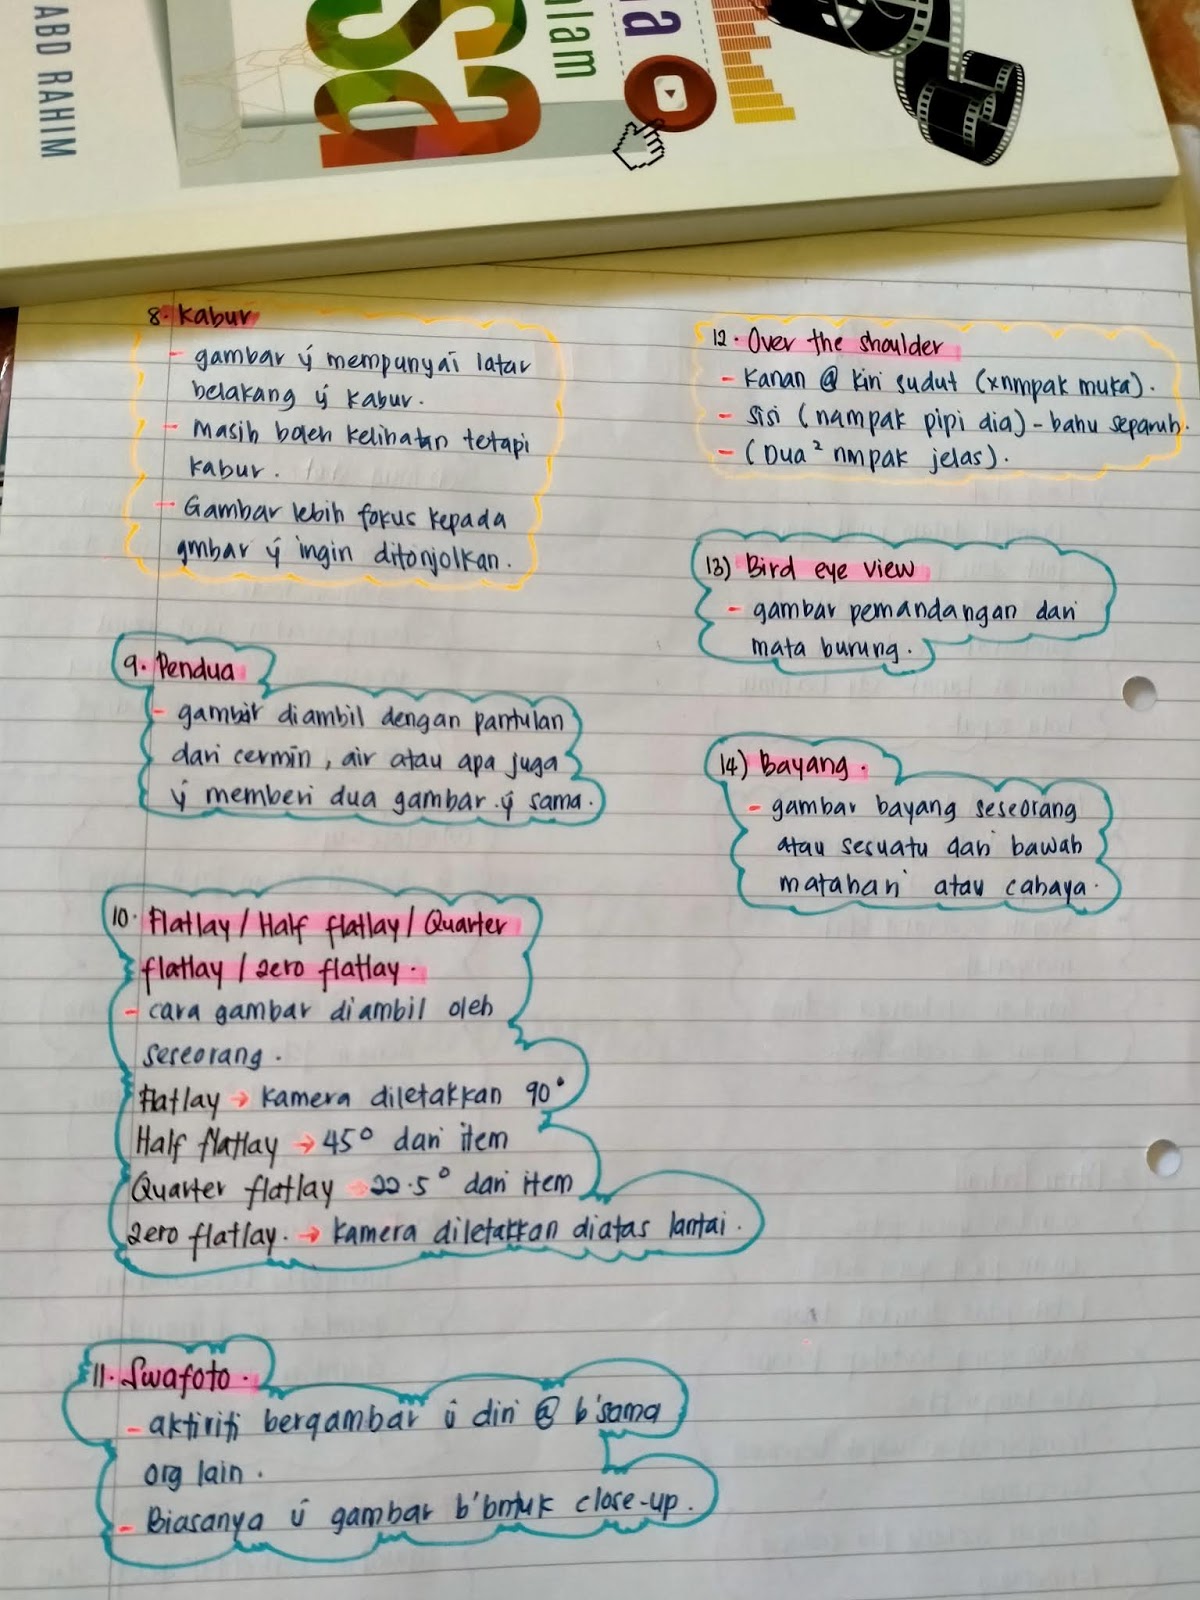 ABD RAHIM
sa
alam
a
8. Kabur
- gambar ý mempunyai latar
belakang ý kabur.
- Masih boleh kelihatan tetapi
kabur.
- Gambar lebih fokus kepada
gmbar ý ingin ditonjolkan.
9. Pendua
- gambar diambil dengan pantulan
dari cermin, air atau apa juga
ý memberi dua gambar ý sama.
10. Flatlay / Half flatlay / Quarter
flatlay / zero flatlay.
- cara gambar diambil oleh
seseorang.
Flatlay → kamera diletakkan 90°
Half flatlay → 45° dari item
Quarter flatlay → 22.5° dari item
Zero flatlay. → kamera diletakkan diatas lantai.
11. Swafoto.
- aktiviti bergambar ú diri @ b'sama
org lain.
- Biasanya ú gambar b'bntuk close-up.
12. Over the shoulder
- Kanan @ kiri sudut (xnmpak muka).
- sisi (nampak pipi dia) - bahu separuh.
- (Dua² nmpak jelas).
13) Bird eye view
- gambar pemandangan dari
mata burung.
14) Bayang.
- gambar bayang seseorang
atau sesuatu dari bawah
matahari atau cahaya.